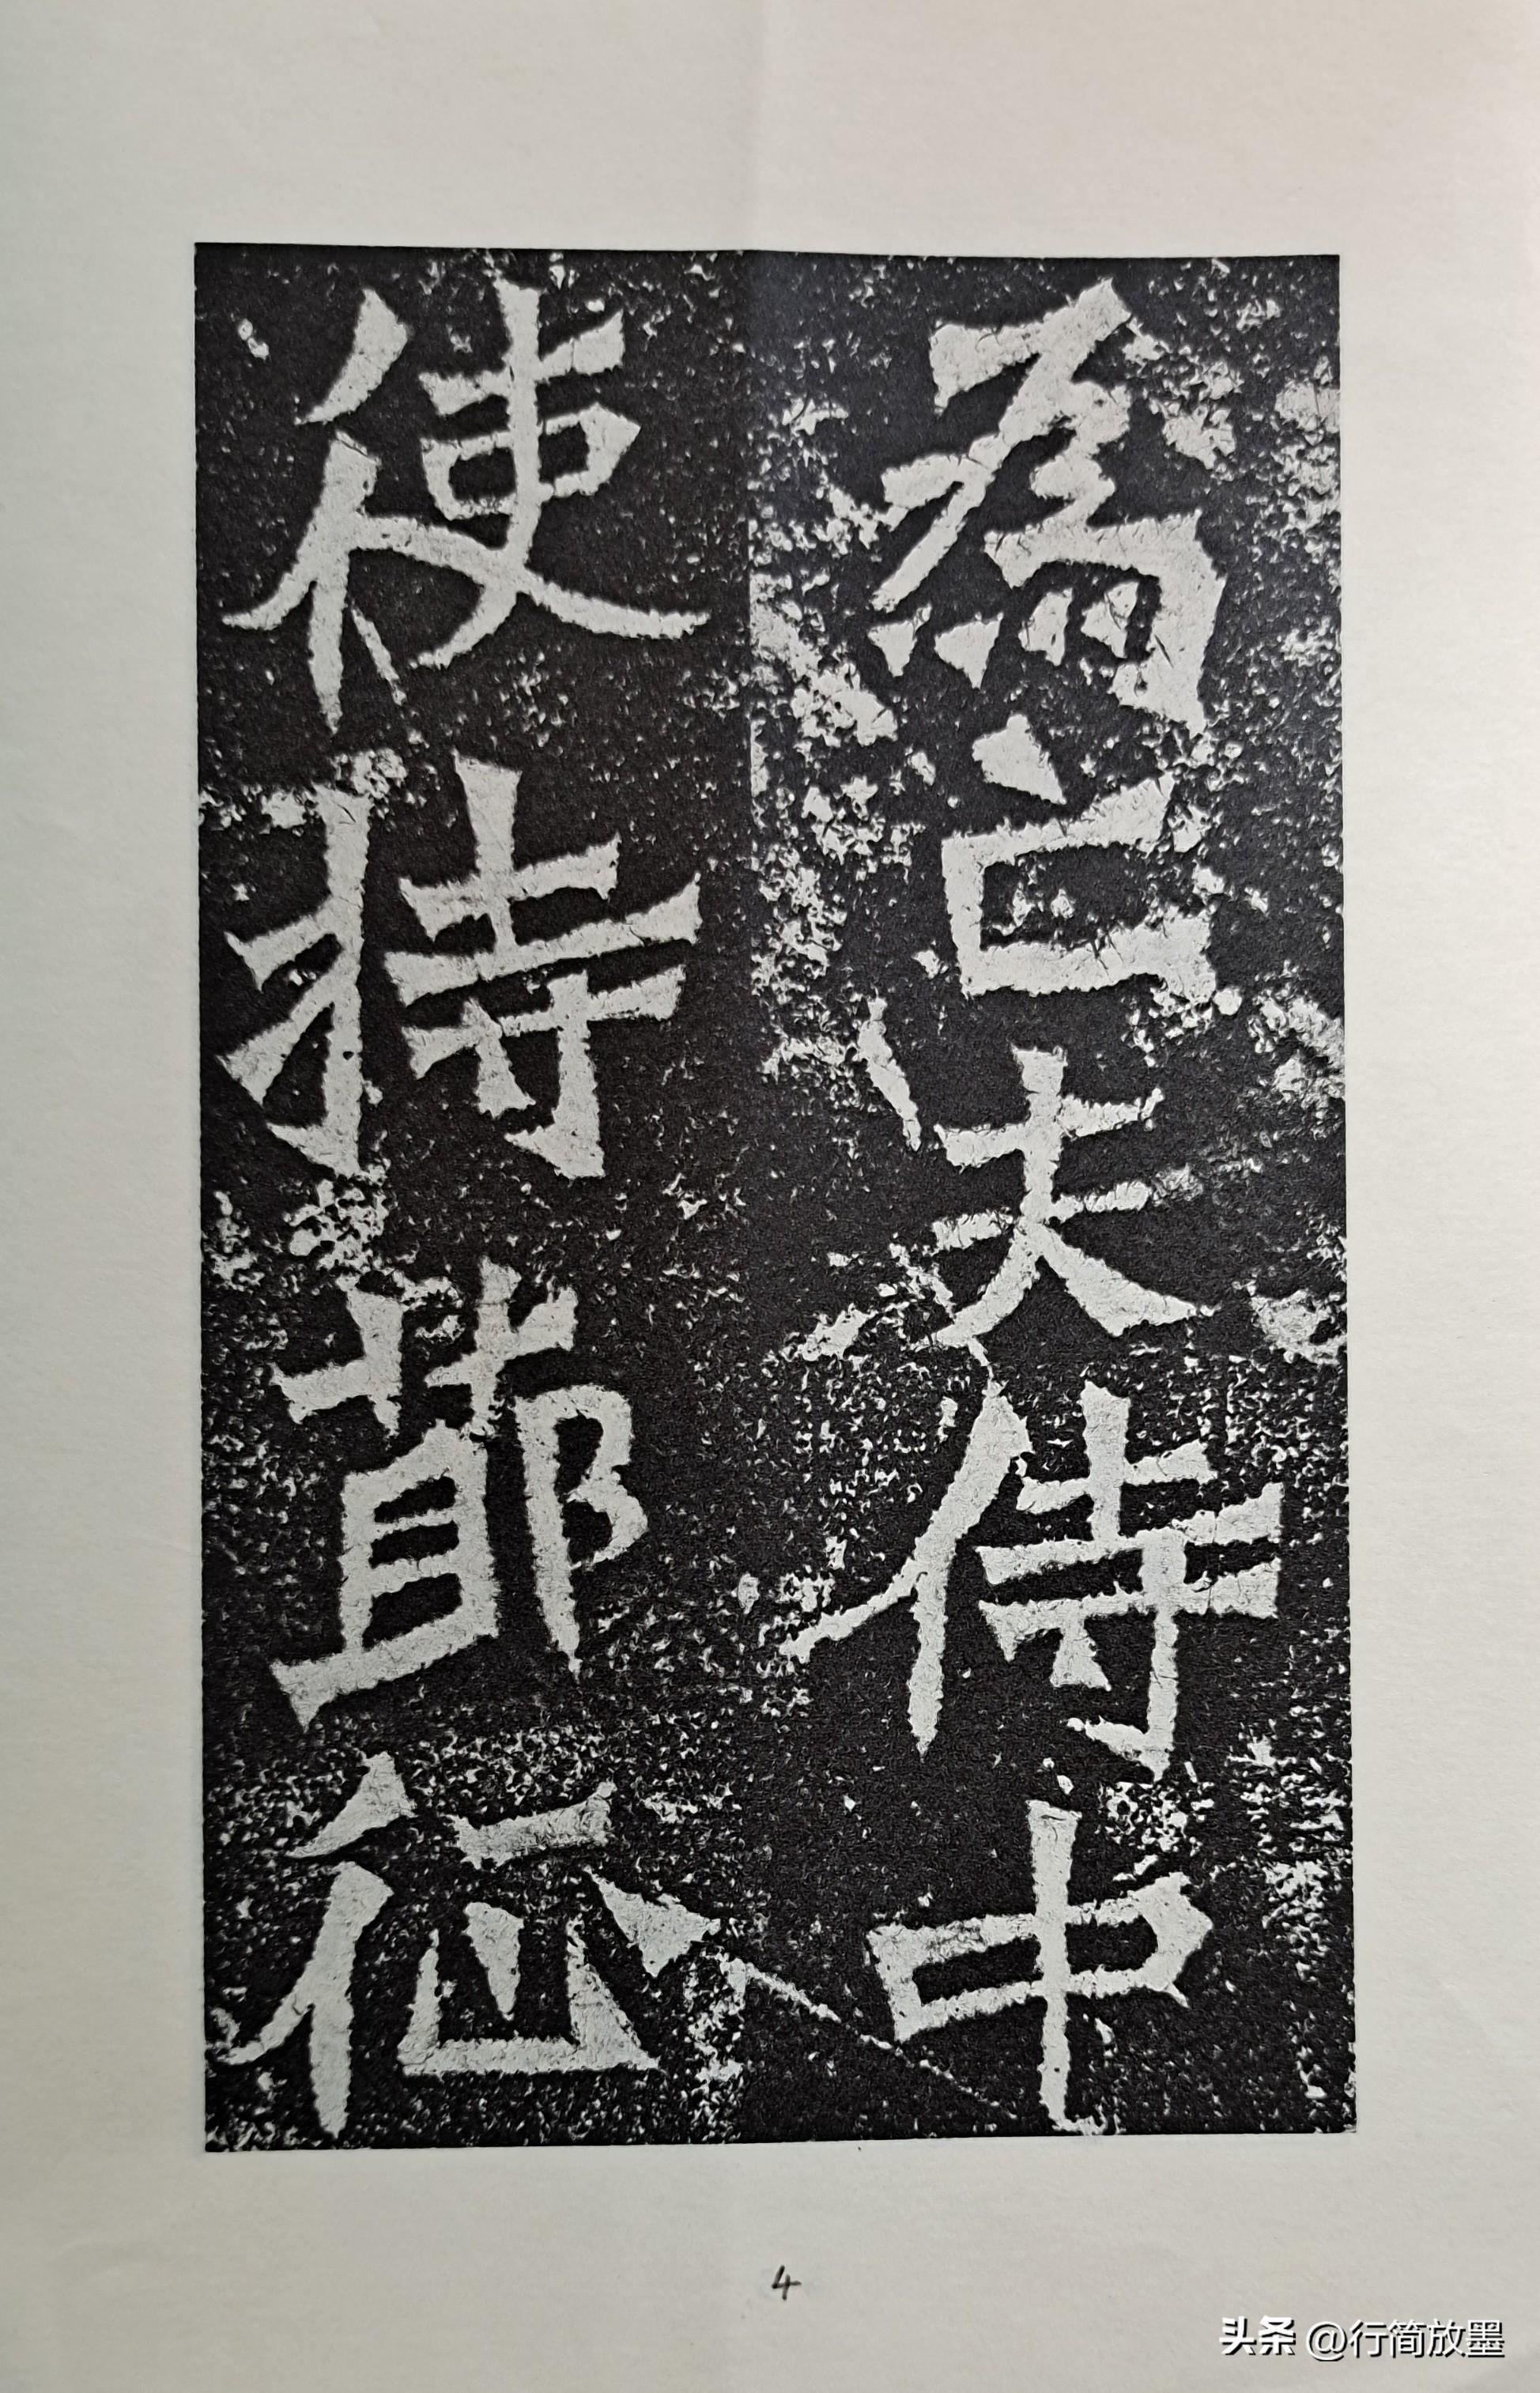 為亡夫侍中
使持莭征
4
头条 @行简放墨